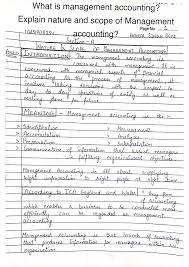 What is management accounting?
Explain nature and scope of Management
accounting?
Page No
Section - A
INTRODUCTION & SCOPE OF MANAGEMENT ACCOUNTING
The management accounting is
concerned with management. It is
concerned with managerial aspects of financial
accounting. It is the process of
taking decisions with the respect to
day to day operations of entity as well as
making plans for future.
MEANING
The management accounting is the
Identification → Measurement
Accumulation → Analysis
Preparation → Interpretation
Communication of information that assist managers
in fulfilling organizational objectives
Management Accounting is all about supplying
right information to right people at right time
According to ICA England and Wales " Any form
of accounting which
enables the business to be conducted more
efficiently can be regarded as management
accounting
Management accounting is that branch of accounting
that produces information for managers within
organisation.